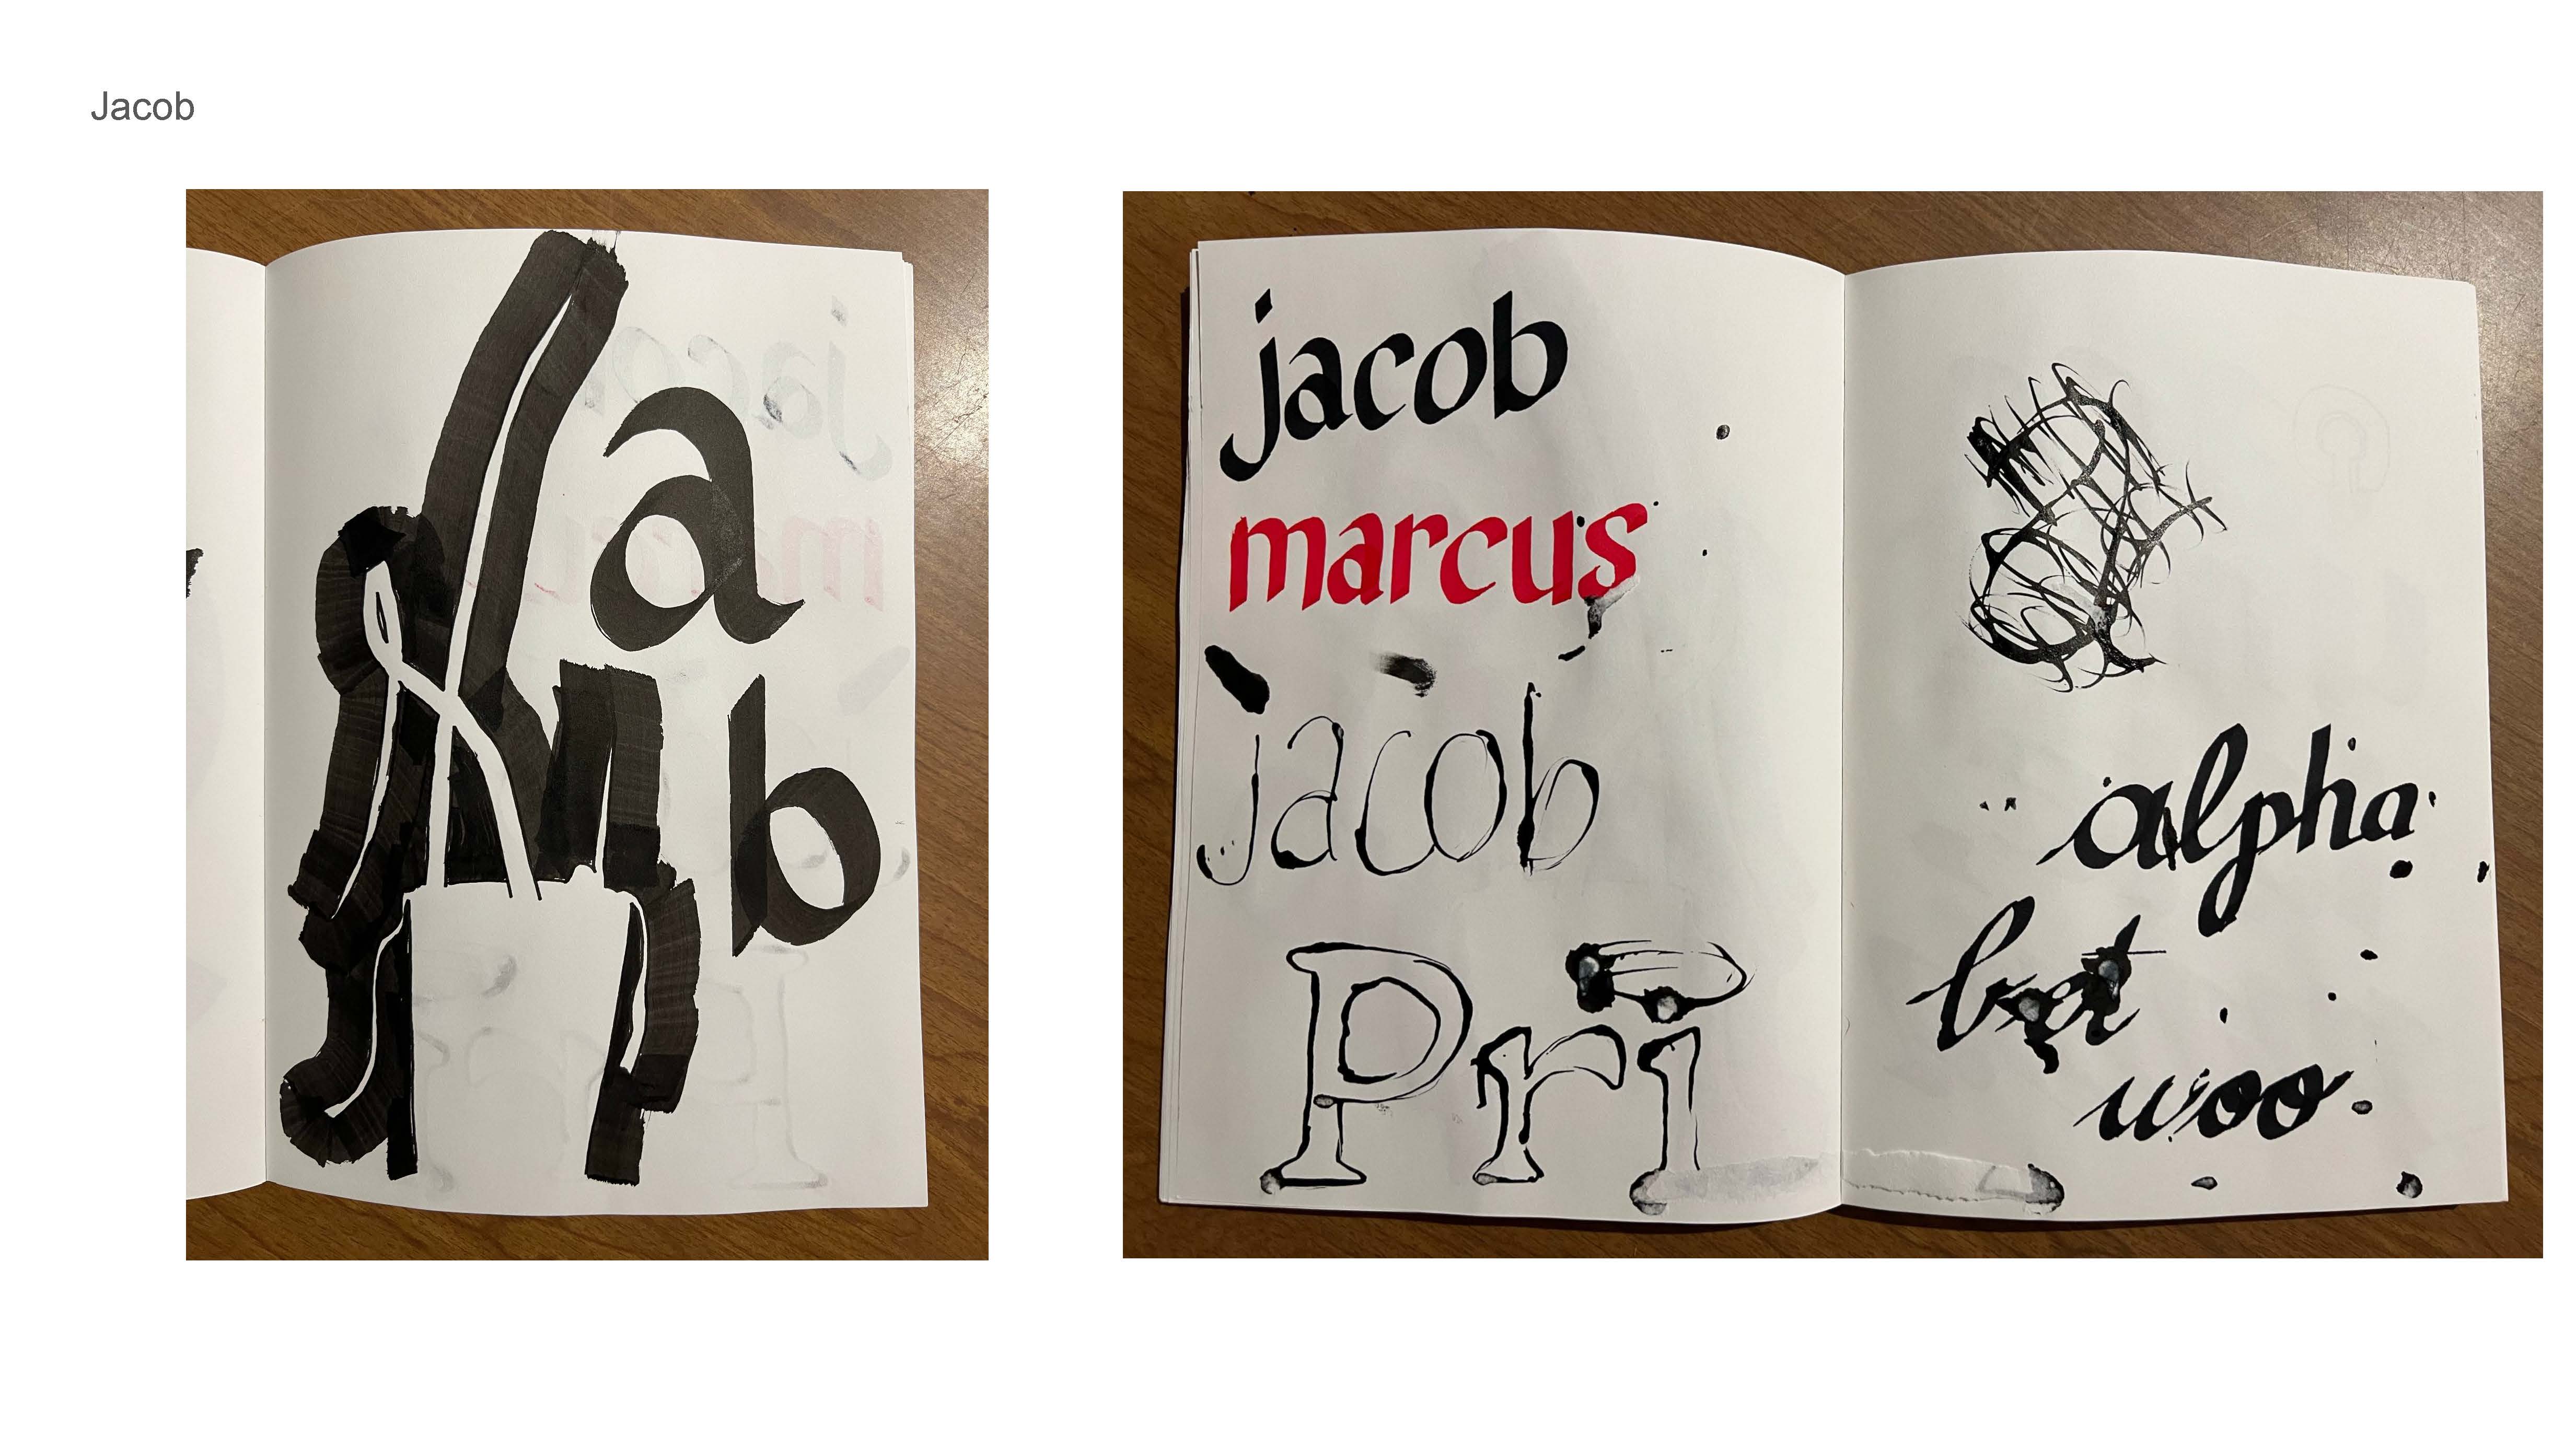 Jacob
a
b
jacob
marcus
jacob
Pri
alpha
bet
woo